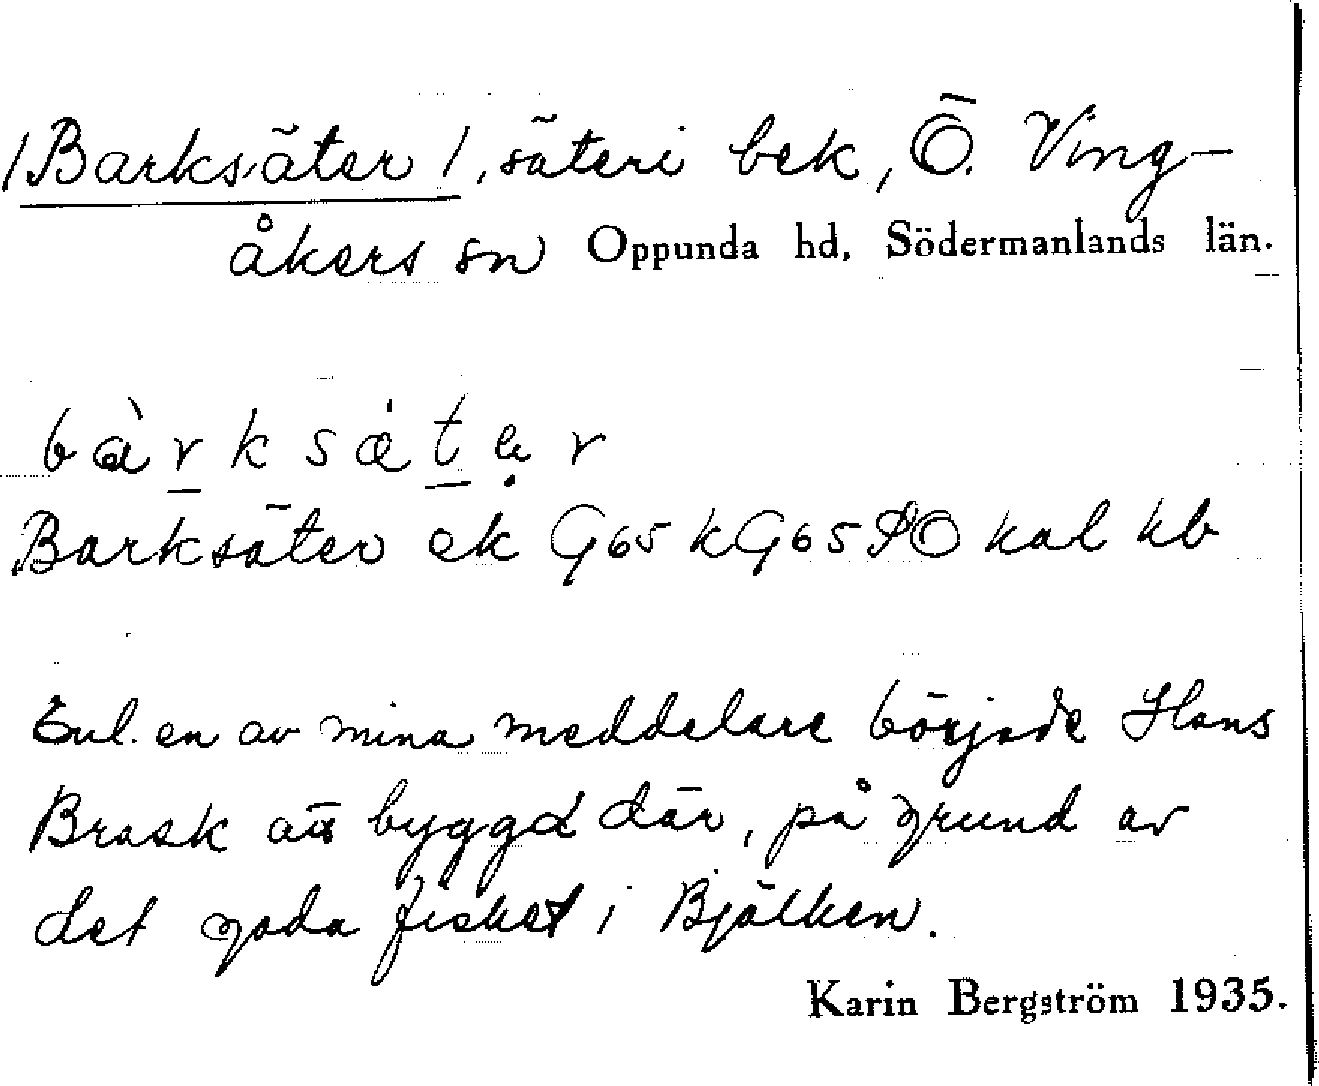 /Barksäter/, säteri bek, Ö. Ving-
åkers sn Oppunda hd, Södermanlands län.
bàrksætẹr
Barksäter ek G65 kG65 SO kal kb
Enl. en av mina meddelare började Hans
Brask att byggd där, på grund av
det goda fisket i Bjälken.
Karin Bergström 1935.